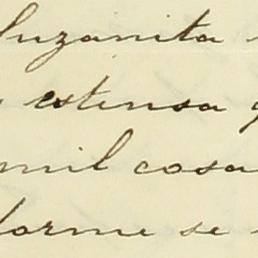 Suzanita
estensa
mil cosa
forme se